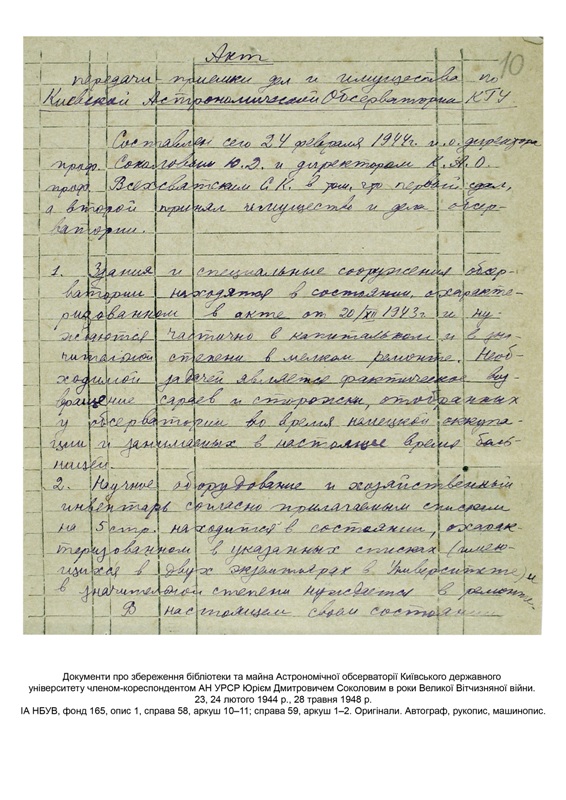 10
Акт
передачи-приемки дел и имущества по
Киевской Астрономической Обсерватории КГУ
Составлен сего 24 февраля 1944г. и.о. директора
проф. Соколовым Ю.Д. и директором К.А.О.
проф. Всехсвятским С.К. в том, что первый сдал,
а второй принял имущество и дела обсер-
ватории.
1. Здания и специальные сооружения обсер-
ватории находятся в состоянии, охаракте-
ризованном в акте от 20/XII 1943г. и ну-
ждаются частично в капитальном и в зна-
чительной степени в мелком ремонте. Необ-
ходимой задачей является фактическое воз
вращение сараев и сторожки, отобранных
у обсерватории во время немецкой оккупа-
ции и занимаемых в настоящее время боль-
ницей.
2. Научное оборудование и хозяйственный
инвентарь согласно прилагаемым спискам
на 5 стр. находится в состоянии, охарак-
теризованном в указанных списках (имею-
щихся в двух экземплярах в Университете) и
в значительной степени нуждается в ремонте.
В настоящем своем состоянии
Документи про збереження бібліотеки та майна Астрономічної обсерваторії Київського державного
університету членом-кореспондентом АН УРСР Юрієм Дмитровичем Соколовим в роки Великої Вітчизняної війни.
23, 24 лютого 1944 р., 28 травня 1948 р.
ІА НБУВ, фонд 165, опис 1, справа 58, аркуш 10–11; справа 59, аркуш 1–2. Оригінали. Автограф, рукопис, машинопис.